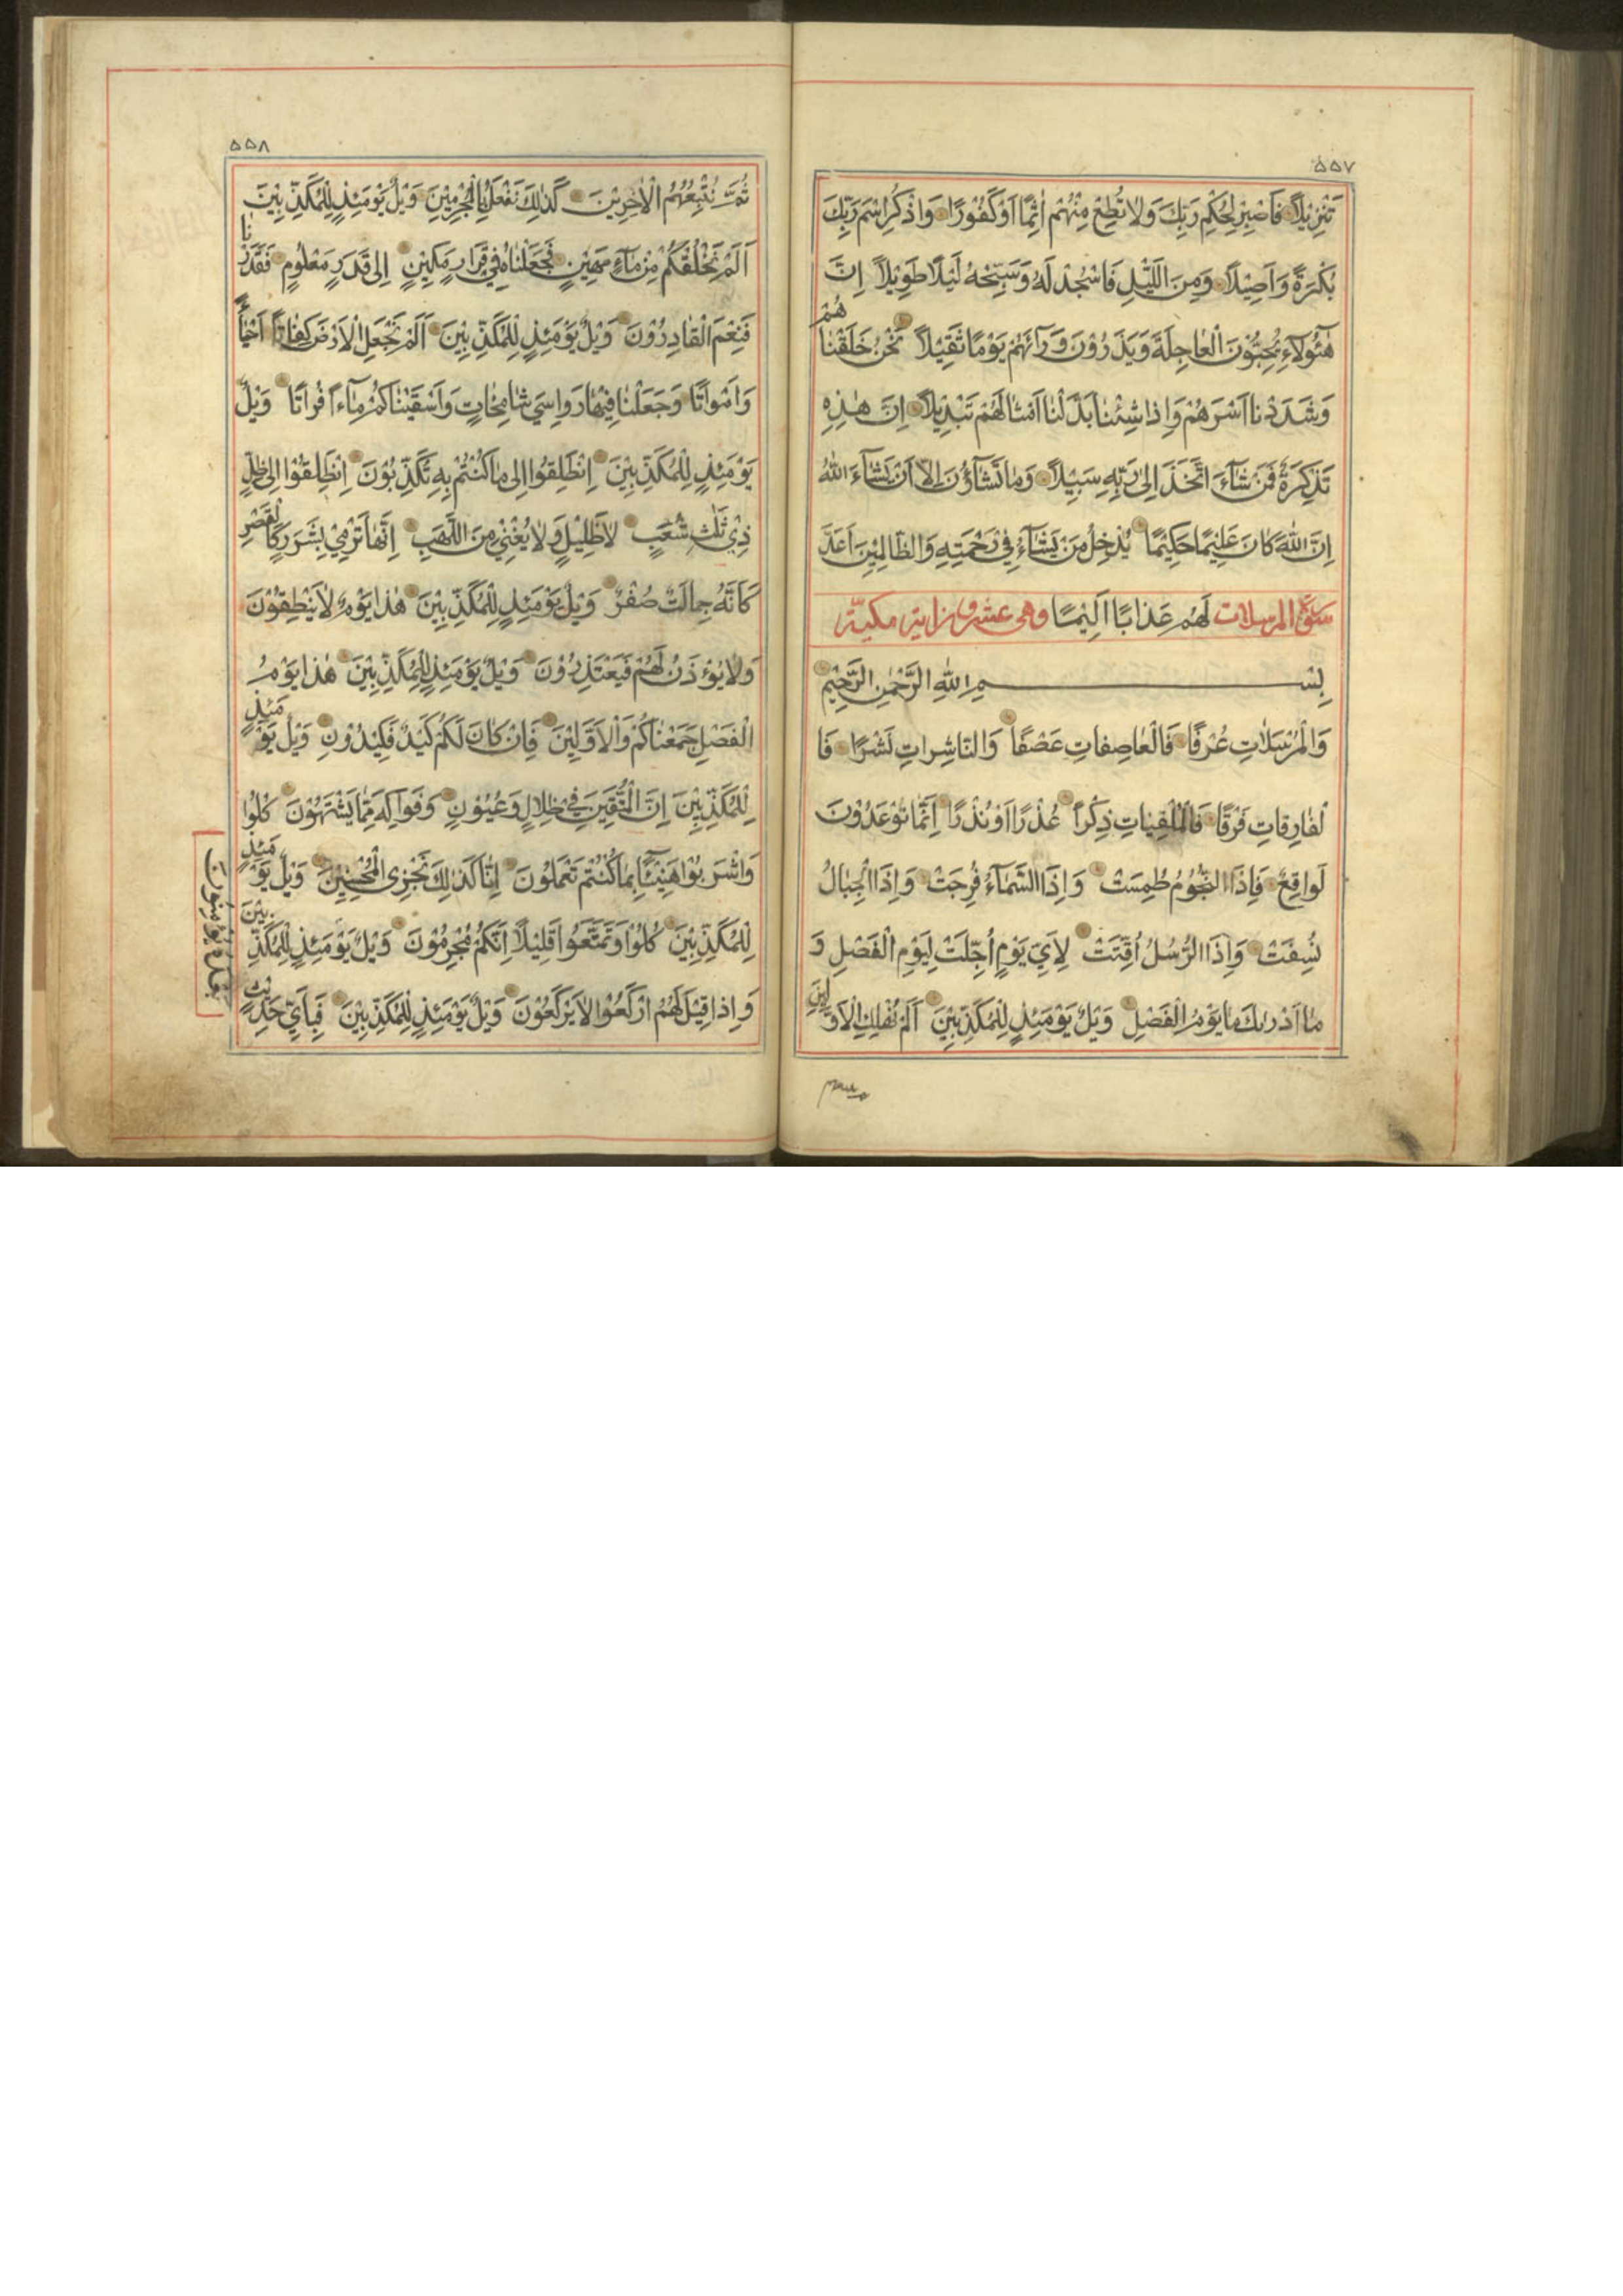 ٥٥٧
تَنْزِيْلًا فَاصْبِرْ لِحُكْمِ رَبِّكَ وَلَا تُطِعْ مِنْهُمْ اٰثِمًا اَوْ كَفُوْرًا وَاذْكُرِ اسْمَ رَبِّكَ
بُكْرَةً وَاَصِيْلًا وَمِنَ اللَّيْلِ فَاسْجُدْ لَهُ وَسَبِّحْهُ لَيْلًا طَوِيْلًا اِنَّ
هٰٓئُولَآءِ يُحِبُّوْنَ الْعَاجِلَةَ وَيَذَرُوْنَ وَرَآئَهُمْ يَوْمًا ثَقِيْلًا نَحْنُ خَلَقْنَا هُمْ
وَشَدَدْنَا اَسْرَهُمْ وَاِذَا شِئْنَا بَدَّلْنَا اَمْثَالَهُمْ تَبْدِيْلًا اِنَّ هٰذِهِ
تَذْكِرَةٌ فَمَنْ شَآءَ اتَّخَذَ اِلٰى رَبِّهِ سَبِيْلًا وَمَا تَشَآؤُنَ اِلَّا اَنْ يَشَآءَ اللّٰهُ
اِنَّ اللّٰهَ كَانَ عَلِيْمًا حَكِيْمًا يُدْخِلُ مَنْ يَشَآءُ فِيْ رَحْمَتِهِ وَالظَّالِمِيْنَ اَعَدَّ
سورة المرسلات لَهُمْ عَذَابًا اَلِيْمًا وهى عشر اية مكية
بِسْمِ اللّٰهِ الرَّحْمٰنِ الرَّحِيْمِ
وَالْمُرْسَلَاتِ عُرْفًا فَالْعَاصِفَاتِ عَصْفًا وَالنَّاشِرَاتِ نَشْرًا فَا
لْفَارِقَاتِ فَرْقًا فَالْمُلْقِيَاتِ ذِكْرًا عُذْرًا اَوْ نُذْرًا اِنَّمَا تُوْعَدُوْنَ
لَوَاقِعٌ فَاِذَا النُّجُوْمُ طُمِسَتْ وَاِذَا السَّمَآءُ فُرِجَتْ وَاِذَا الْجِبَالُ
نُسِفَتْ وَاِذَا الرُّسُلُ اُقِّتَتْ لِاَيِّ يَوْمٍ اُجِّلَتْ لِيَوْمِ الْفَصْلِ وَ
مَا اَدْرٰىكَ مَا يَوْمُ الْفَصْلِ وَيْلٌ يَوْمَئِذٍ لِلْمُكَذِّبِيْنَ اَلَمْ نُهْلِكِ الْاَوَّلِيْنَ
٥٥٨
ثُمَّ نُتْبِعُهُمُ الْاٰخِرِيْنَ كَذٰلِكَ نَفْعَلُ بِالْمُجْرِمِيْنَ وَيْلٌ يَوْمَئِذٍ لِلْمُكَذِّبِيْنَ
اَلَمْ نَخْلُقْكُمْ مِنْ مَآءٍ مَهِيْنٍ فَجَعَلْنَاهُ فِيْ قَرَارٍ مَكِيْنٍ اِلٰى قَدَرٍ مَعْلُوْمٍ فَقَدَرْنَا
فَنِعْمَ الْقَادِرُوْنَ وَيْلٌ يَوْمَئِذٍ لِلْمُكَذِّبِيْنَ اَلَمْ نَجْعَلِ الْاَرْضَ كِفَاتًا اَحْيَآءً
وَاَمْوَاتًا وَجَعَلْنَا فِيْهَا رَوَاسِيَ شَامِخَاتٍ وَاَسْقَيْنَاكُمْ مَآءًا فُرَاتًا وَيْلٌ
يَوْمَئِذٍ لِلْمُكَذِّبِيْنَ اِنْطَلِقُوْا اِلٰى مَا كُنْتُمْ بِهِ تُكَذِّبُوْنَ اِنْطَلِقُوْا اِلٰى ظِلٍّ
ذِيْ ثَلٰثِ شُعَبٍ لَا ظَلِيْلٍ وَلَا يُغْنِيْ مِنَ اللَّهَبِ اِنَّهَا تَرْمِيْ بِشَرَرٍ كَالْقَصْرِ
كَاَنَّهُ جِمَالَتٌ صُفْرٌ وَيْلٌ يَوْمَئِذٍ لِلْمُكَذِّبِيْنَ هٰذَا يَوْمُ لَا يَنْطِقُوْنَ
وَلَا يُؤْذَنُ لَهُمْ فَيَعْتَذِرُوْنَ وَيْلٌ يَوْمَئِذٍ لِلْمُكَذِّبِيْنَ هٰذَا يَوْمُ
الْفَصْلِ جَمَعْنَاكُمْ وَالْاَوَّلِيْنَ فَاِنْ كَانَ لَكُمْ كَيْدٌ فَكِيْدُوْنِ وَيْلٌ يَوْمَئِذٍ
لِلْمُكَذِّبِيْنَ اِنَّ الْمُتَّقِيْنَ فِيْ ظِلَالٍ وَعُيُوْنٍ وَفَوَاكِهَ مِمَّا يَشْتَهُوْنَ كُلُوْا
وَاشْرَبُوْا هَنِيْٓئًا بِمَا كُنْتُمْ تَعْمَلُوْنَ اِنَّا كَذٰلِكَ نَجْزِى الْمُحْسِنِيْنَ وَيْلٌ يَوْمَئِذٍ
لِلْمُكَذِّبِيْنَ كُلُوْا وَتَمَتَّعُوْا قَلِيْلًا اِنَّكُمْ مُجْرِمُوْنَ وَيْلٌ يَوْمَئِذٍ لِلْمُكَذِّبِيْنَ
وَاِذَا قِيْلَ لَهُمُ ارْكَعُوْا لَا يَرْكَعُوْنَ وَيْلٌ يَوْمَئِذٍ لِلْمُكَذِّبِيْنَ فَبِاَيِّ حَدِيْثٍ
بَعْدَهُ يُؤْمِنُوْنَ